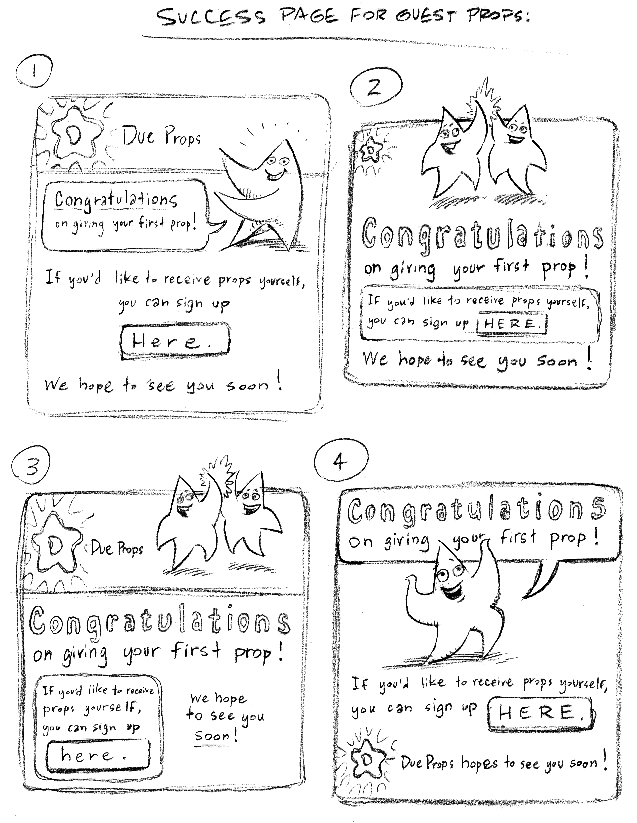 SUCCESS PAGE FOR GUEST PROPS:
1
D
Due Props
Congratulations
on giving your first prop!
If you'd like to receive props yourself,
you can sign up
Here.
We hope to see you soon!
2
D
Congratulations
on giving your first prop!
If you'd like to receive props yourself,
you can sign up HERE.
We hope to see you soon!
3
D
Due Props
Congratulations
on giving your first prop!
If you'd like to receive
props yourself,
you can sign up
here.
We hope
to see you
soon!
4
Congratulations
on giving your first prop!
If you'd like to receive props yourself,
you can sign up HERE.
D
Due Props hopes to see you soon!